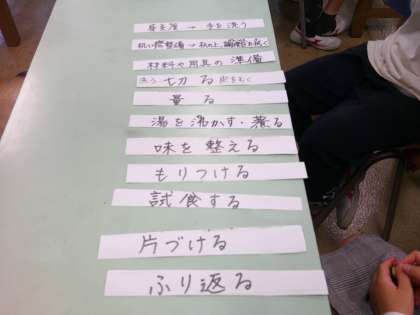 身支度 → 手を洗う
材料や用具の準備
洗う 切る 皮をむく
量る
湯を沸かす・煮る
味を整える
もりつける
試食する
片づける
ふり返る